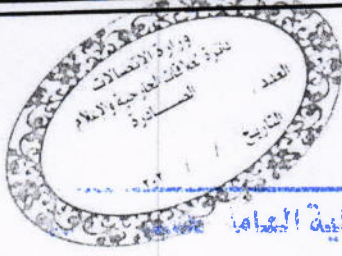 وزارة الاتصالات
دائرة العلاقات الخارجية والاعلام
الصـــــادرة
العدد :
التاريخ / / ٢٠٢
العامة